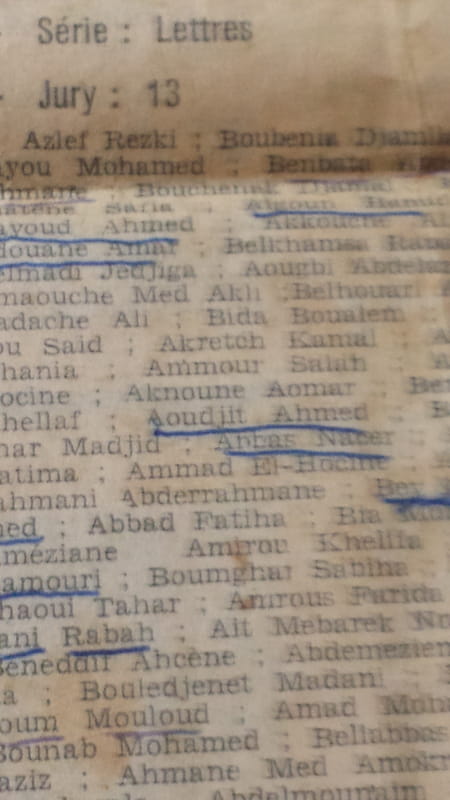 Série : Lettres
Jury : 13
Azlef Rezki ; Boubenia Djamila
ayou Mohamed ; Benbata
hmarte ; Bouchenak Djamal
Safia ; Algoun Hamid
ayoud Ahmed ; Akkouche
douane Amar ; Belkhamsa
elmadi Jedjiga ; Aougbi
maouche Med Akli ; Belhouari
adache Ali ; Bida Boualem
ou Said ; Akretch Kamal ; A
hania ; Ammour Salah
ocine ; Aknoune Aomar ; Be
hellaf ; Aoudjit Ahmed ; B
nar Madjid ; Abbas Nacer
atima ; Ammad El-Hocine
ahmani Abderrahmane ; Bey
ed ; Abbad Fatiha ; Bia
méziane Amirou Khelifa
amouri ; Boumghar Sabiha
haoui Tahar ; Amrous Farida
ani Rabah ; Ait Mebarek No
Beneddif Ahcène ; Abdemezien
a ; Bouledjenet Madani ;
oum Mouloud ; Amad Moh
Bounab Mohamed ; Bellabbas
aziz ; Ahmane Med Amokr
Abdelmoumaim